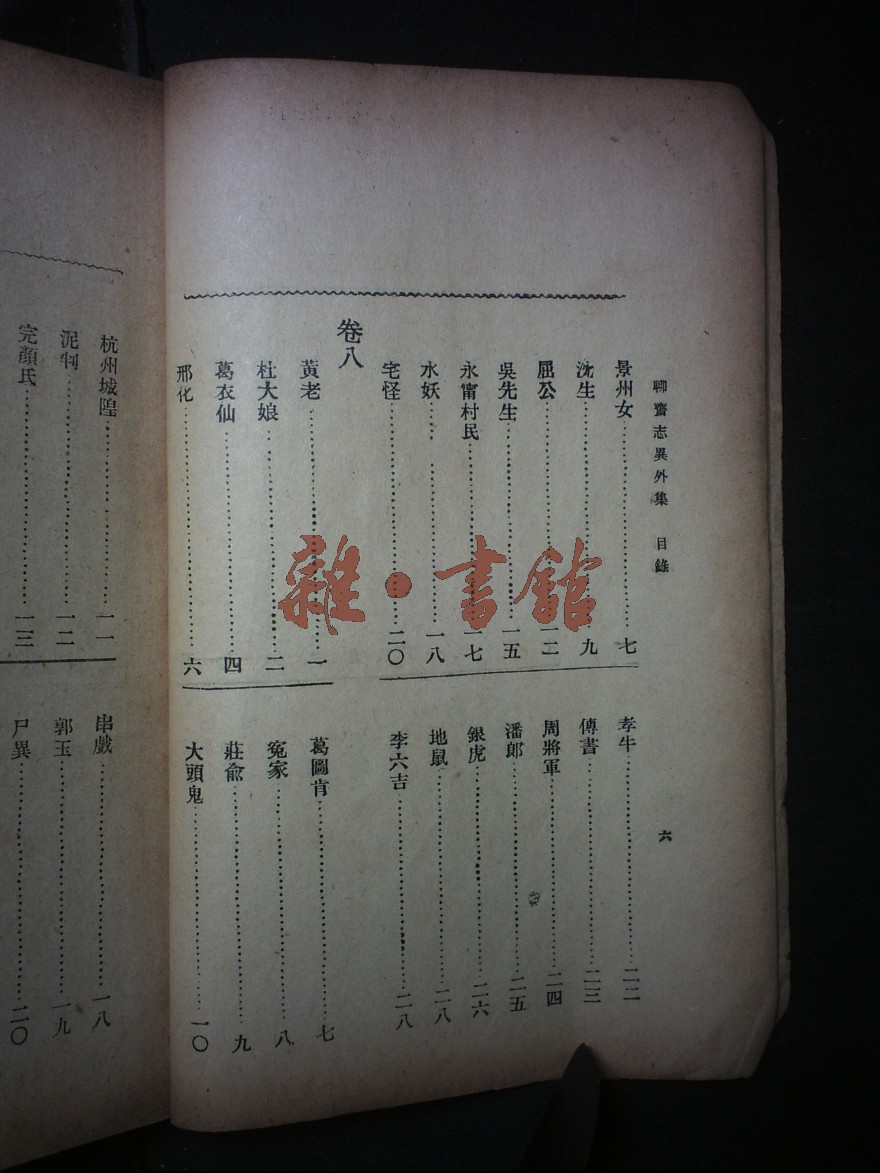 聊齋志異外集　目錄　六
景州女……七
沈生……九
屈公……一二
吳先生……一五
永甯村民……一七
水妖……一八
宅怪……二〇
孝牛……二二
傅書……二三
周將軍……二四
潘郎……二五
銀虎……二六
地鼠……二八
李六吉……二八
卷八
黃老……一
杜大娘……二
葛衣仙……四
邢化……六
葛圖肯……七
冤家……八
莊俞……九
大頭鬼……一〇
杭州城隍……一一
泥判……一二
完顏氏……一三
串戲……一八
郭玉……一九
尸異……二〇
雜·書館